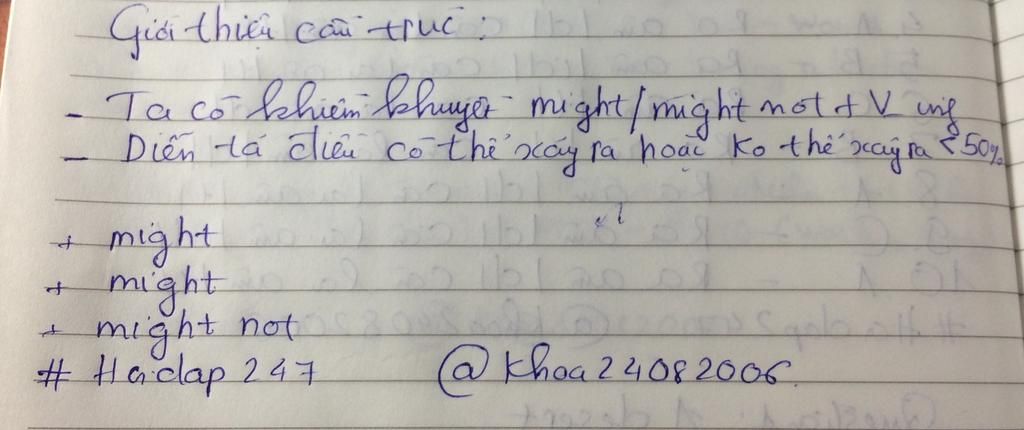 Giới thiệu cấu trúc:
- Ta có khiếm khuyết might/might not + V ing
- Diễn tả điều có thể xảy ra hoặc ko thể xảy ra ≤ 50%
+ might
+ might
+ might not
# Hoidap 247 @khoa24082006.